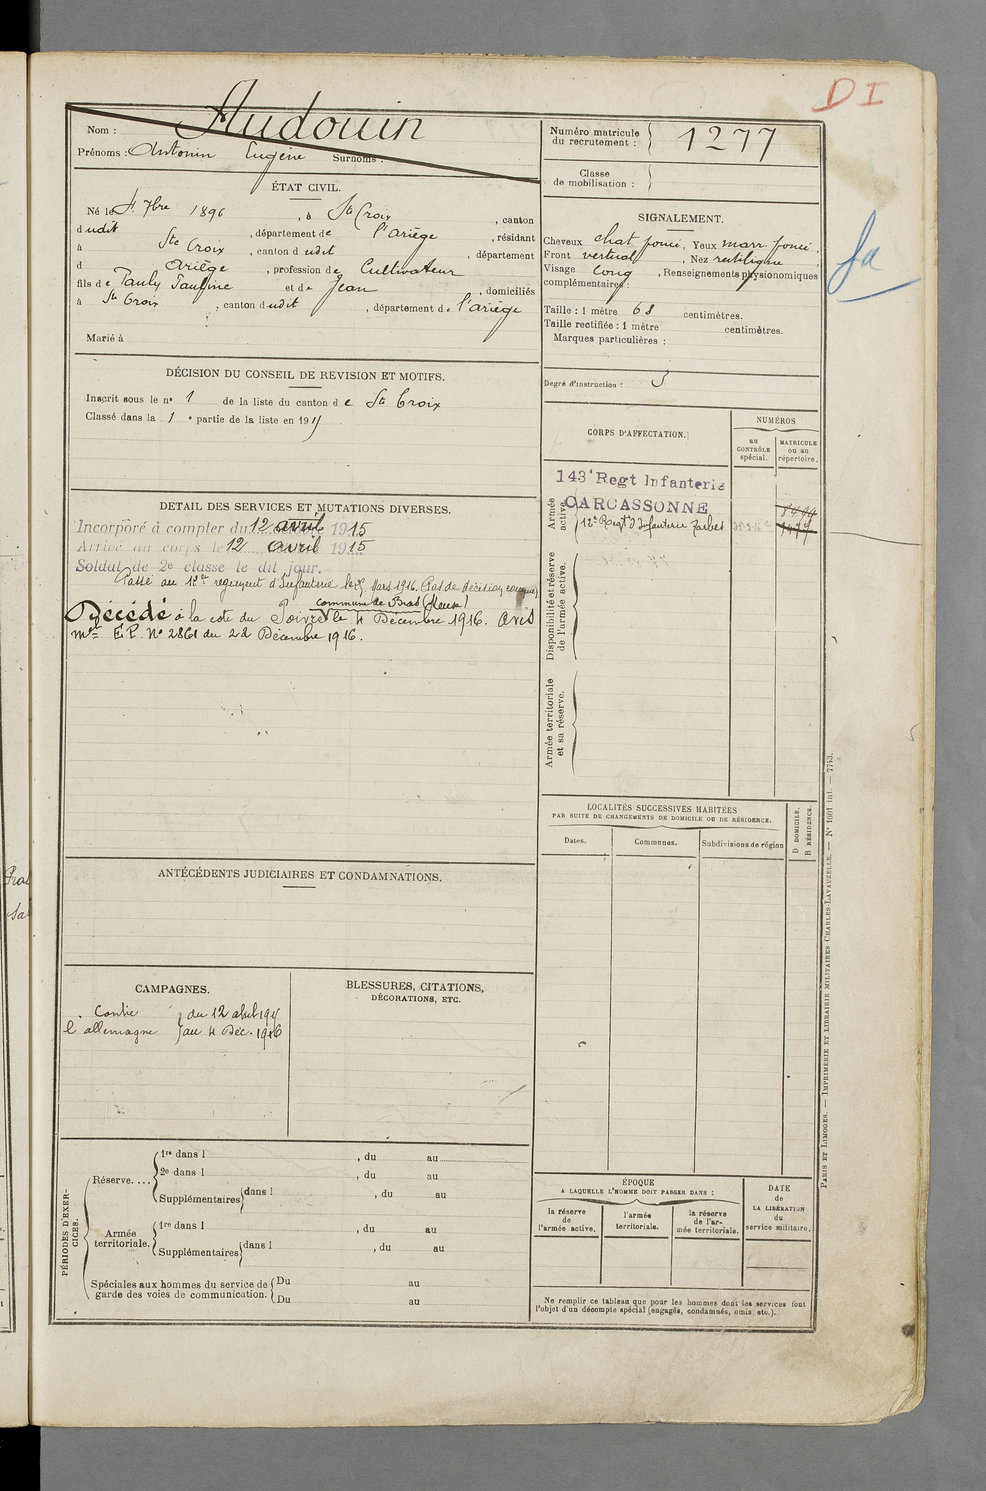 DI
Nom : Audouin
Prénoms : Antonin Eugène Surnoms :
Numéro matricule du recrutement : 1277
Classe de mobilisation :
ÉTAT CIVIL.
Né le 4 7bre 1896, à Ste Croix, canton
dudit, département de l'Ariège, résidant
à Ste Croix, canton dudit, département
d Ariège, profession de Cultivateur
fils de Pauly Pauline et de Jean, domiciliés
à Ste Croix, canton dudit, département de l'Ariège
Marié à
SIGNALEMENT.
Cheveux chat foncé, Yeux marr. foncé,
Front vertical, Nez rectiligne
Visage long, Renseignements physionomiques
complémentaires :
Taille : 1 mètre 68 centimètres.
Taille rectifiée : 1 mètre centimètres.
Marques particulières :
Degré d'instruction : 3
fa
DÉCISION DU CONSEIL DE REVISION ET MOTIFS.
Inscrit sous le n° 1 de la liste du canton de Ste Croix
Classé dans la 1 e partie de la liste en 191
CORPS D'AFFECTATION.
NUMÉROS
au CONTRÔLE spécial.
MATRICULE ou au répertoire.
Armée active.
143e Regt Infanterie
CARCASSONNE
12e Regt d'Infanterie Tarbes
Disponibilité et réserve de l'armée active.
Armée territoriale et sa réserve.
DETAIL DES SERVICES ET MUTATIONS DIVERSES.
Incorporé à compter du 12 avril 1915
Arrivé au corps le 12 avril 1915
Soldat de 2e classe le dit jour.
Passé au 12e régiment d'Infanterie le Mars 1916 (Pas de décision connue)
commune de Bras (Meuse)
Décédé à la cote du Poivre le 4 Décembre 1916. Avis
Mel E.P. N° 2861 du 22 Décembre 1916.
LOCALITÉS SUCCESSIVES HABITÉES
PAR SUITE DE CHANGEMENTS DE DOMICILE OU DE RÉSIDENCE.
Dates. Communes. Subdivisions de région
D DOMICILE.
R RÉSIDENCE.
ANTÉCÉDENTS JUDICIAIRES ET CONDAMNATIONS.
CAMPAGNES.
Contre du 12 avril 1915
l'allemagne au 4 Déc. 1916
BLESSURES, CITATIONS,
DÉCORATIONS, ETC.
PÉRIODES D'EXERCICES.
Réserve....
1re dans l , du au
2e dans l , du au
Supplémentaires dans l , du au
Armée territoriale.
1re dans l , du au
Supplémentaires dans l , du au
Spéciales aux hommes du service de garde des voies de communication.
Du au
Du au
ÉPOQUE
A LAQUELLE L'HOMME DOIT PASSER DANS :
la réserve de l'armée active.
l'armée territoriale.
la réserve de l'armée territoriale.
DATE de LA LIBÉRATION du service militaire.
Ne remplir ce tableau que pour les hommes dont les services font
l'objet d'un décompte spécial (engagés, condamnés, omis, etc.).
PARIS ET LIMOGES. — IMPRIMERIE ET LIBRAIRIE MILITAIRES CHARLES-LAVAUZELLE. — N° 1001 int. — 7743.